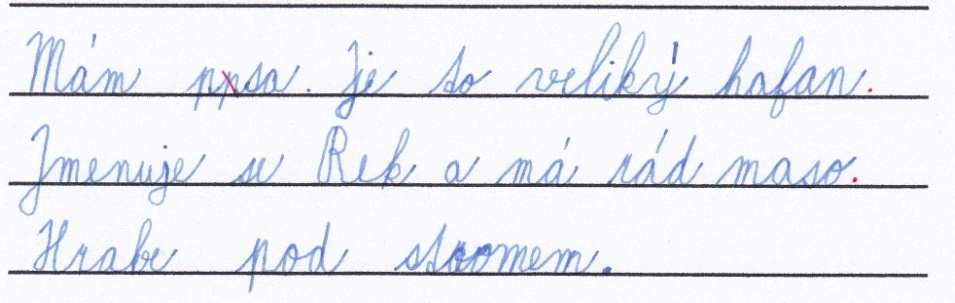 Mám ppsa. Je to veliký hafan.
Jmenuje se Rek a má rád maso.
Hrabe pod stromem.